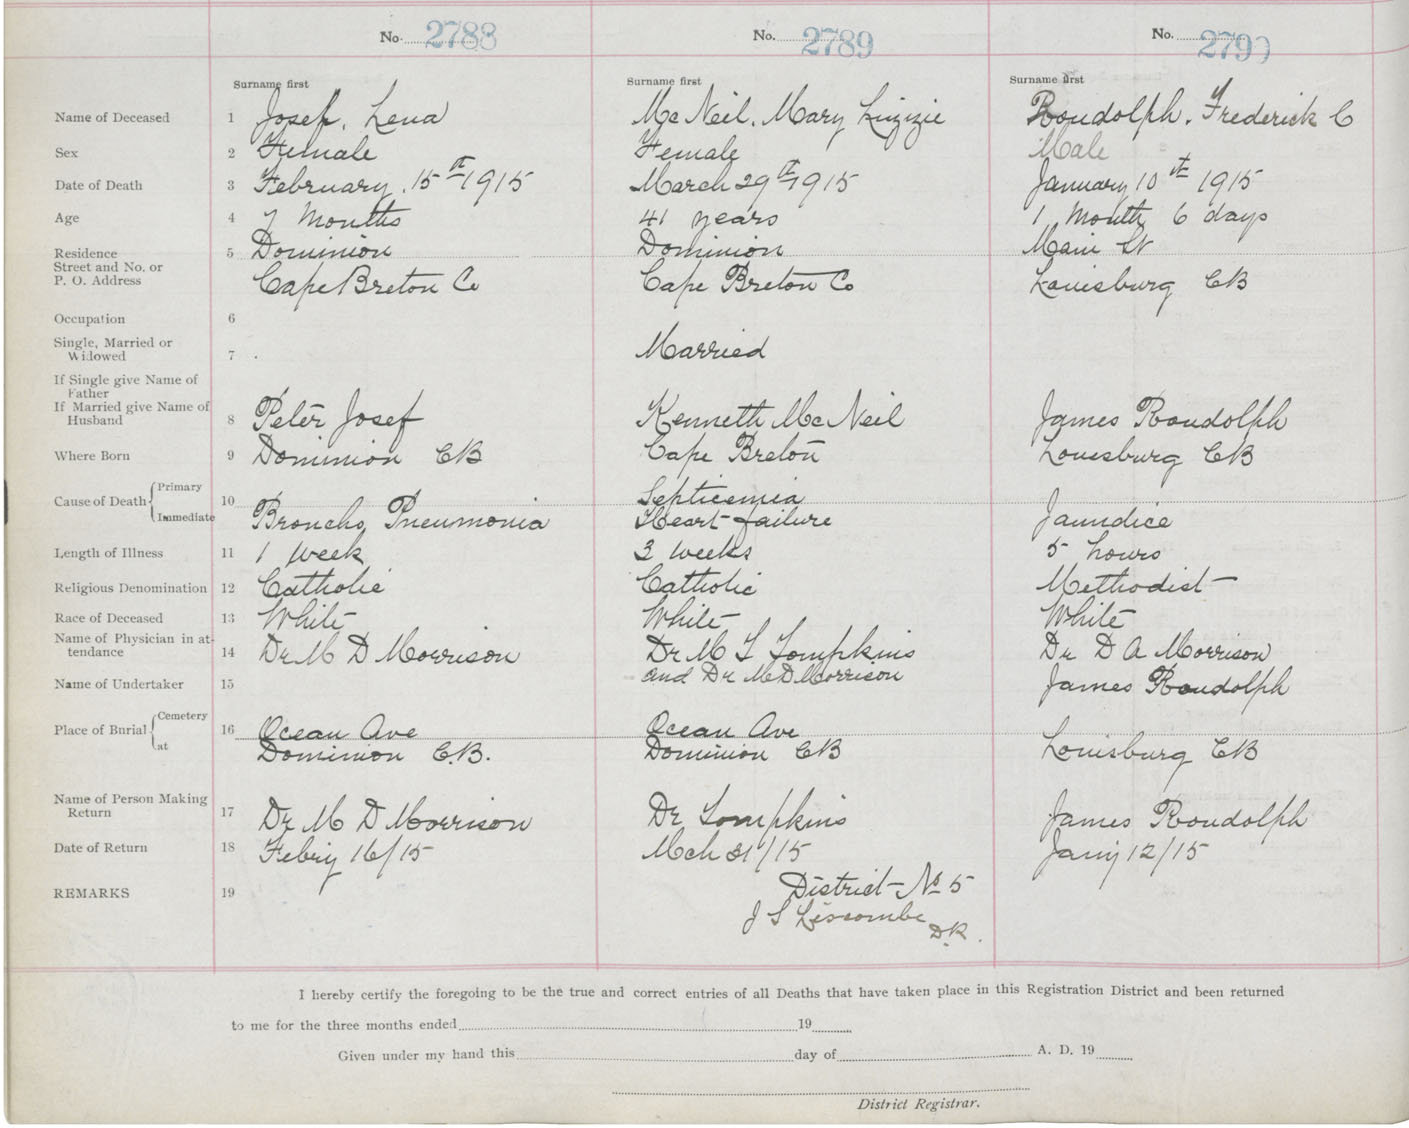 No. 2788 No. 2789 No. 2790
Surname first Surname first Surname first
Name of Deceased 1 Josef, Lena McNeil, Mary Lizizie Roudolph, Frederick C
Sex 2 Female Female Male
Date of Death 3 February, 15th 1915 March 29th 1915 January 10th 1915
Age 4 7 Months 41 years 1 Month 6 days
Residence 5 Dominion Dominion Main St
Street and No. or
P. O. Address Cape Breton Co Cape Breton Co Louisburg CB
Occupation 6
Single, Married or
Widowed 7 Married
If Single give Name of
Father
If Married give Name of
Husband 8 Peter Josef Kenneth McNeil James Roudolph
Where Born 9 Dominion CB Cape Breton Louesburg CB
Cause of Death Primary 10 Septicemia
Immediate Broncho Pneumonia Heart failure Jaundice
Length of Illness 11 1 week 3 weeks 5 hours
Religious Denomination 12 Catholic Catholic Methodist
Race of Deceased 13 White White White
Name of Physician in at-
tendance 14 Dr M D Morrison Dr M L Tompkins Dr D A Morrison
Name of Undertaker 15 and Dr M D Morrison James Roudolph
Place of Burial Cemetery 16 Ocean Ave Ocean Ave
at Dominion C.B. Dominion CB Louisburg CB
Name of Person Making
Return 17 Dr M D Morrison Dr Tompkins James Roudolph
Date of Return 18 Febry 16/15 Mch 31/15 Jany 12/15
REMARKS 19 District No 5
J S Liscombe
D.R.
I hereby certify the foregoing to be the true and correct entries of all Deaths that have taken place in this Registration District and been returned
to me for the three months ended 19
Given under my hand this day of A. D. 19
District Registrar.